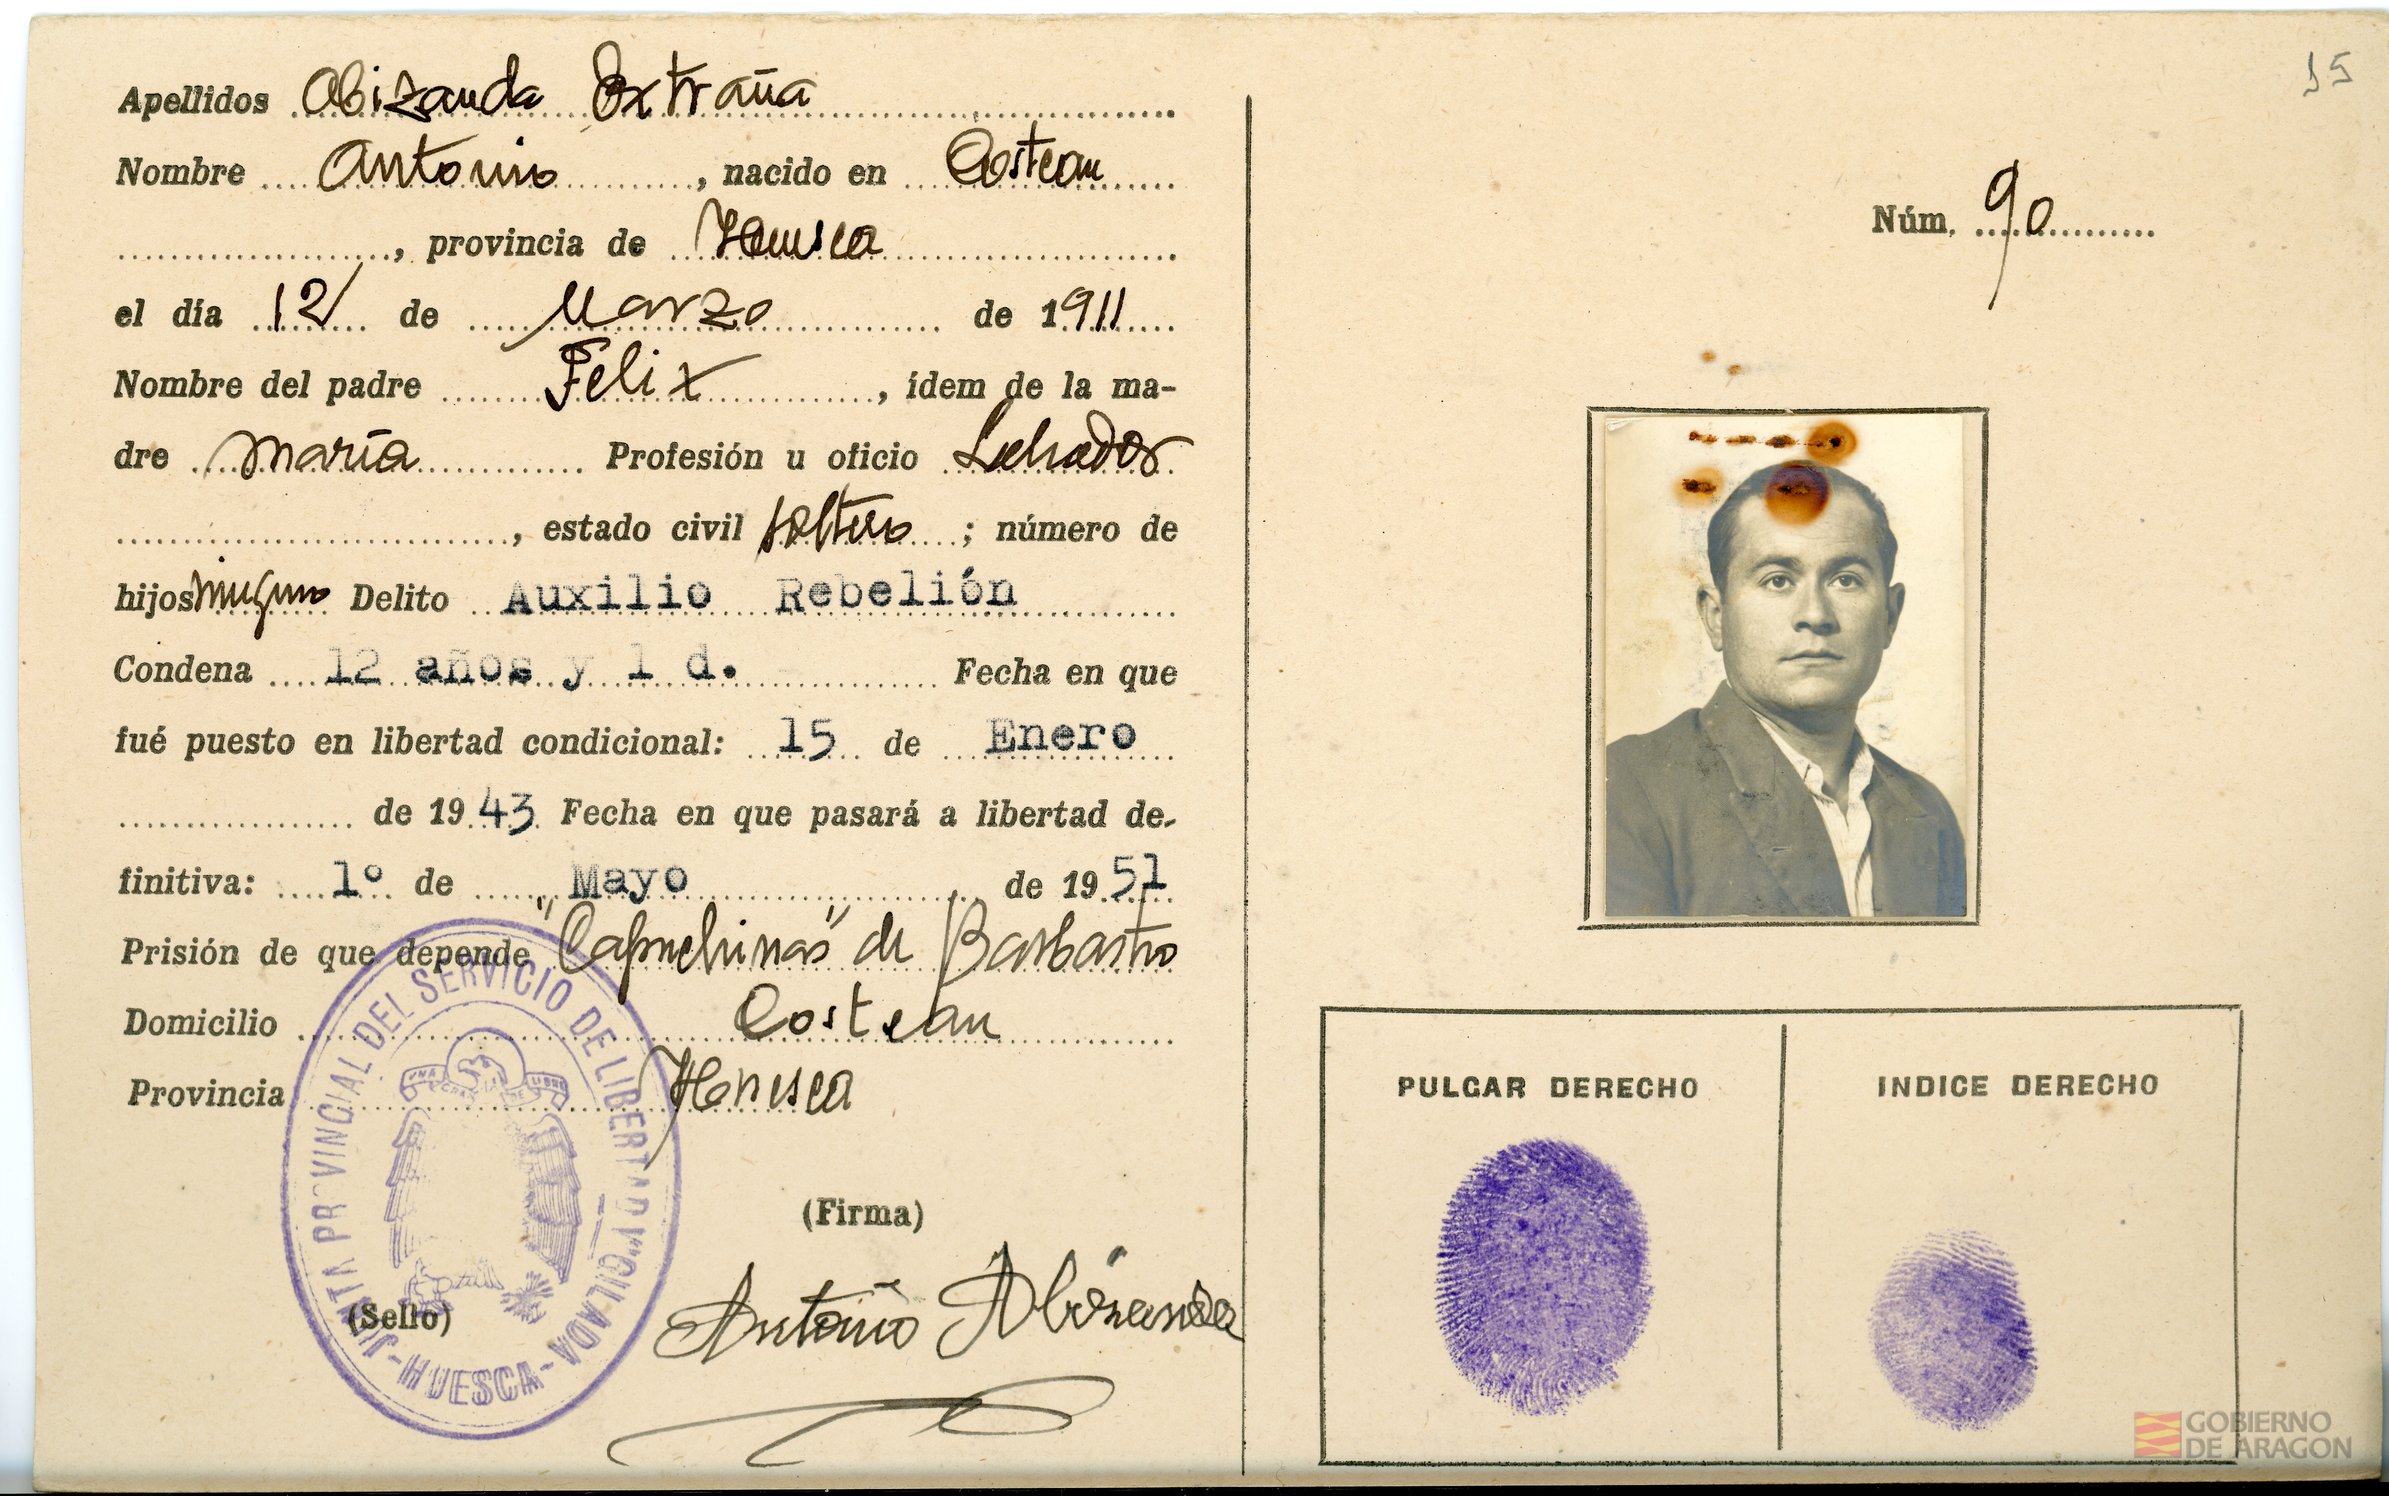 Apellidos Abizanda Extraña
Nombre Antonio, nacido en Costean
, provincia de Huesca
el día 12 de Marzo de 1911
Nombre del padre Felix, ídem de la ma-
dre María Profesión u oficio Labrador
, estado civil soltero; número de
hijos ninguno Delito Auxilio Rebelión
Condena 12 años y 1 d. Fecha en que
fué puesto en libertad condicional: 15 de Enero
de 1943 Fecha en que pasará a libertad de-
finitiva: 1º de Mayo de 1951
Prisión de que depende "Capuchinas" de Barbastro
Domicilio Costean
Provincia Huesca
(Firma)
(Sello)
Antonio Abizanda
JUNTA PROVINCIAL DEL SERVICIO DE LIBERTAD VIGILADA
-HUESCA-
UNA GRANDE LIBRE
15
Núm. 90
PULGAR DERECHO
INDICE DERECHO
GOBIERNO
DE ARAGON